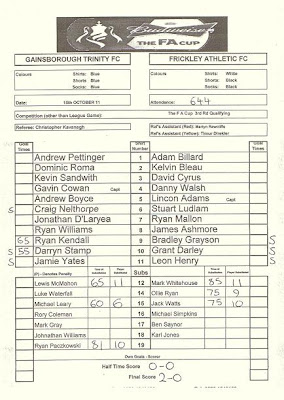 Budweiser
THE FA CUP
GAINSBOROUGH TRINITY FC FRICKLEY ATHLETIC FC
Colours Shirts: Blue Colours Shirts: White
Shorts: Blue Shorts: Black
Socks: Blue Socks: Black
Date: 15th OCTOBER 11 Attendance: 644
Competition (other than League Game): The F A Cup 3rd Rd Qualifying
Referee: Christopher Kavanagh Ref's Assistant (Red): Martyn
Ref's Assistant (Yellow): Timur
Goal Times Shirt Number Goal Times
Andrew Pettinger 1 Adam Billard
Dominic Roma 2 Kelvin Bleau
Kevin Sandwith 3 David Cyrus
Gavin Cowan Capt 4 Danny Walsh
Andrew Boyce 5 Lincon Adams Capt
S Craig Nelthorpe 6 Stuart Ludlam
Jonathan D'Laryea 7 Ryan Mallon
Ryan Williams 8 James Ashmore
65 Ryan Kendall 9 Bradley Grayson S
S 55 Darryn Stamp 10 Grant Darley S
S Jamie Yates 11 Leon Henry S
(P) - Denotes Penalty Subs
Lewis McMahon 65 11 12 Mark Whitehouse 85 11
Luke Waterfall 14 Ollie Ryan 75 9
Michael Leary 60 6 15 Jack Watts 75 10
Rory Coleman 16 Michael Simpkins
Mark Gray 17 Ben Saynor
Johnathan Williams 18 Karl Jones
Ryan Paczkowski 81 10 19
Own Goals - Scorer
Half Time Score 0-0
Final Score 2-0